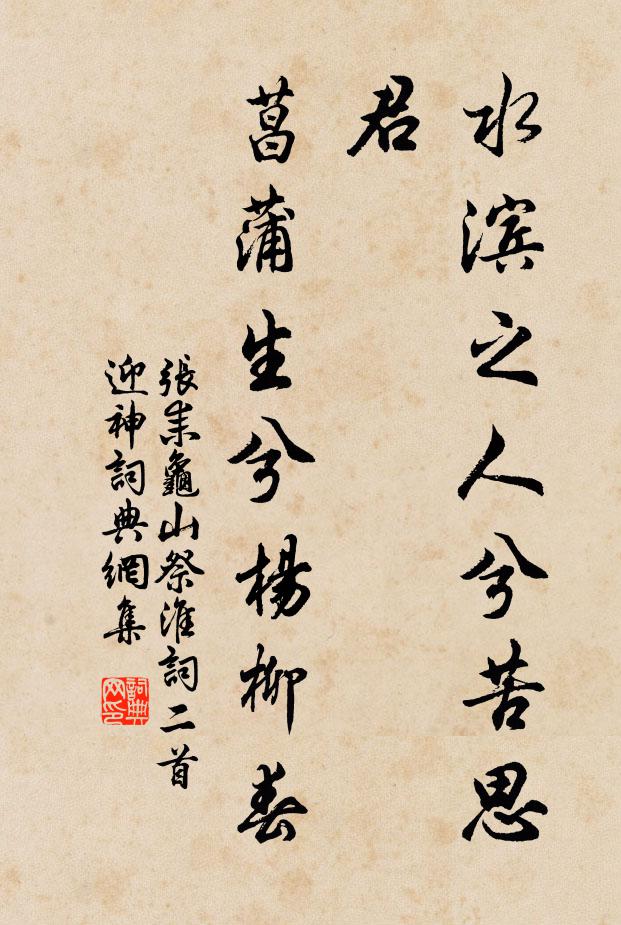 水滨之人兮苦思
君
菖蒲生兮楊柳春
張耒龜山祭淮詞二首
迎神詞典網集
詞典
网印